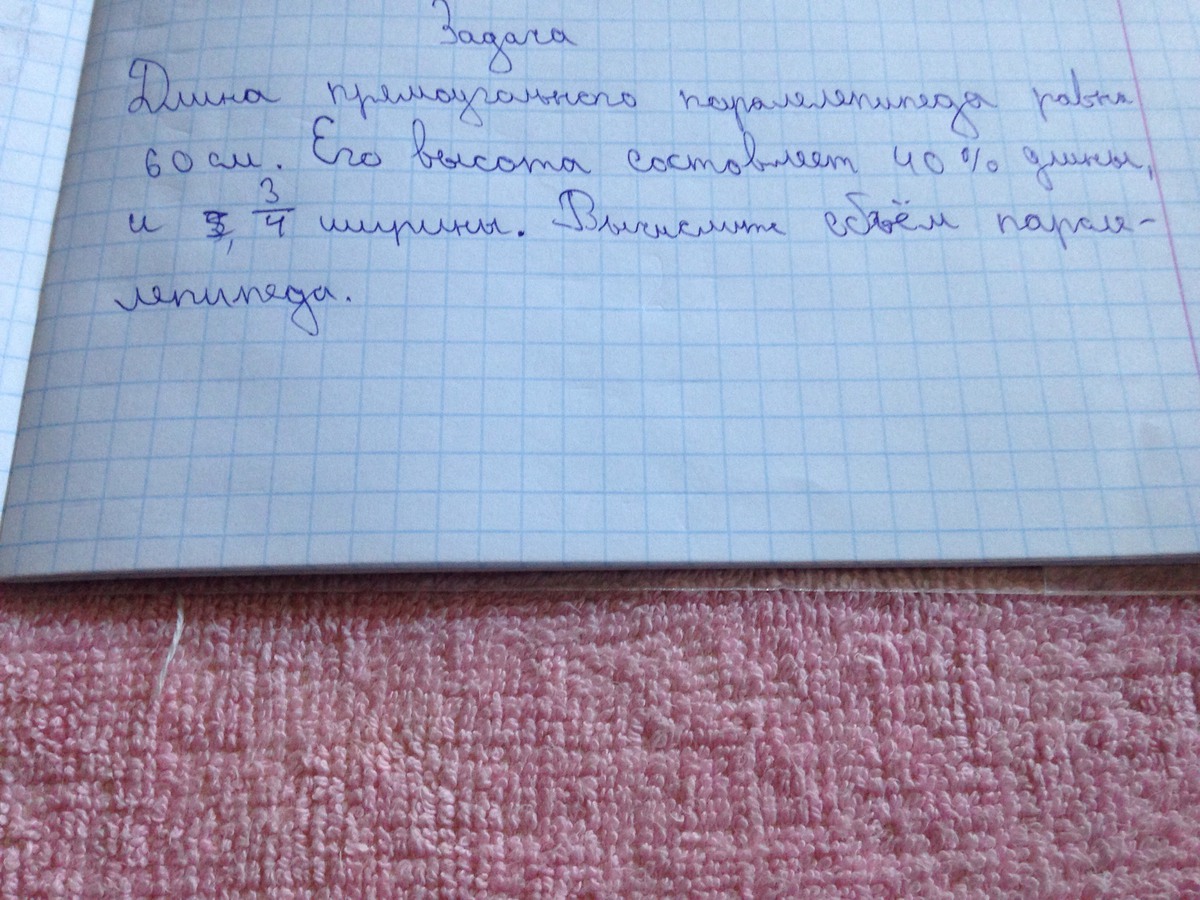 Задача
Длина прямоугольного паралелепипеда равна
60 см. Его высота составляет 40% длины,
и 3/4 ширины. Вычислите объём парале-
лепипеда.